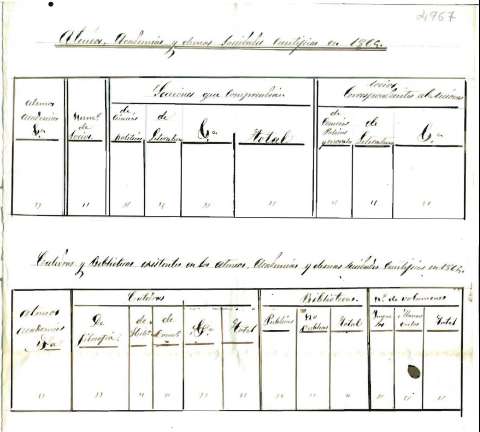 4967
Ateneos, Academias y demas Sociedades Cientificas en 1865.
Ateneos Academias &.a
Num.o de Socios
Secciones que comprenden
de Ciencias
de Literatura
&.a
Total
Socios Correspondientes
de Ciencias Politicas y morales
de Literatura
&.a
" " " " " " " " "
Catedras y Bibliotecas existentes en los Ateneos, Academias y demas Sociedades Cientificas en 1865.
Ateneos Academias &.a
Catedras
De Filosofia
de
de
&.a
Total
Bibliotecas
Publicas
No Publicas
Total
n.o de volumenes
Impresos
Manuscritos
Total
" " " " " " " " " " " "